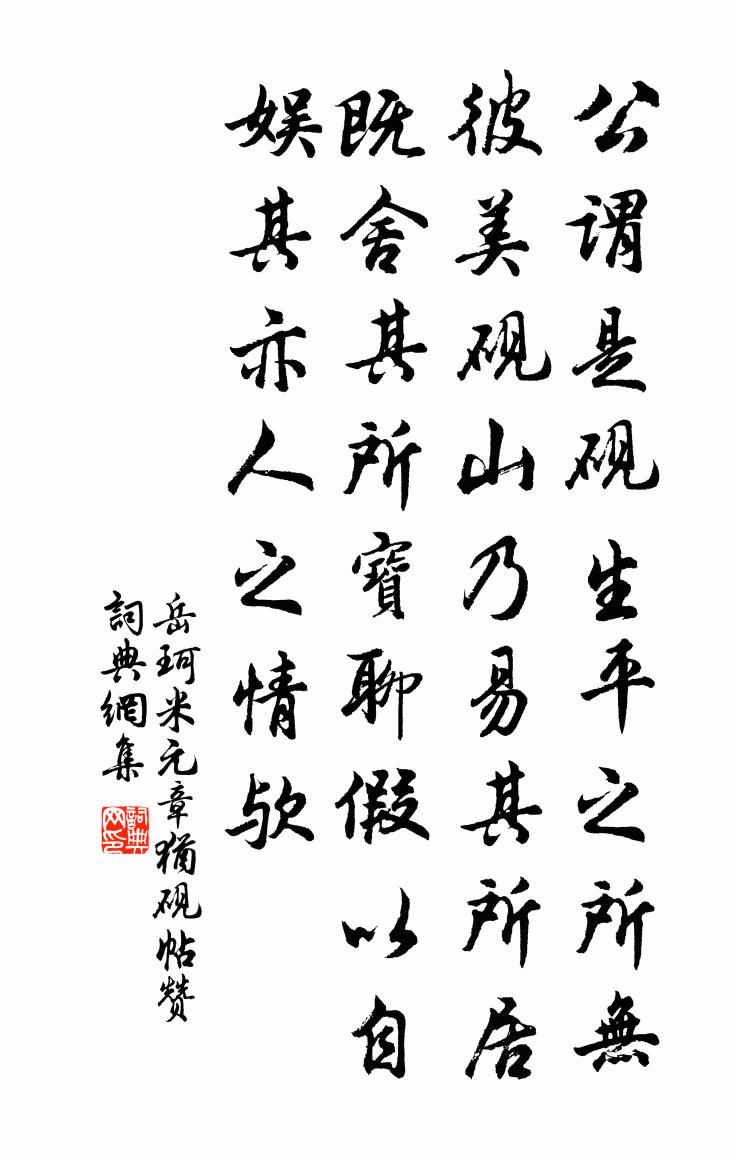 公謂是硯生平之所無
彼美硯山乃易其所居
既舍其所寶聊假以自
娱其亦人之情欤
岳珂米元章猶硯帖贊
詞典網集
詞典网印